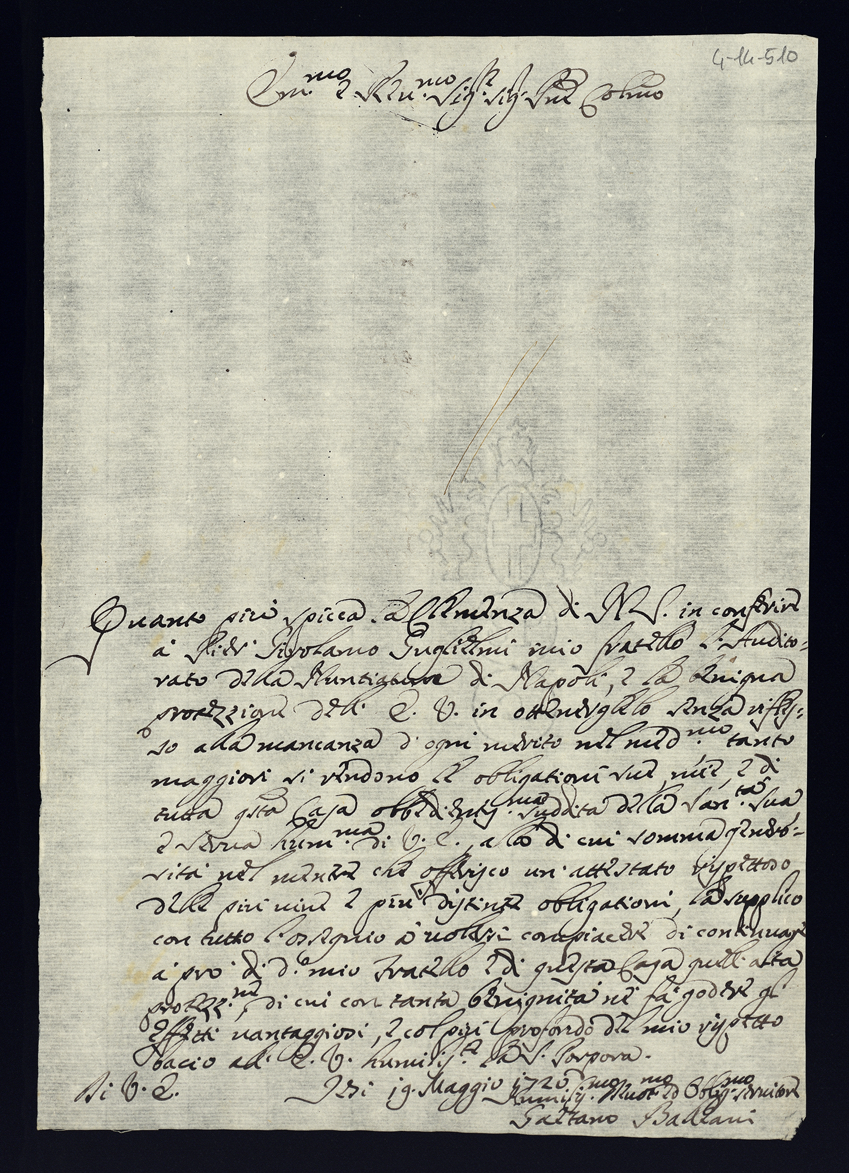 4-14-510
Em.mo e Rev.mo Sig.r Sig.r Pne Colmo
Quanto più spicca la Clemenza di N. S. in conferire
à Pier Girolamo Guglielmi mio fratello l'Audito-
rato della Nuntiatura di Napoli, e la benigna
protezzione dell' E. V. in ottenerglilo senza rifles-
so alla mancanza d'ogni merito nel med.mo tanto
maggiori si rendono le obligationi sue, mie, e di
tutta qsta Casa obbedientis.ma suddita della San.tà Sua
e serva hum.ma di V. E., alla di cui somma generò-
sità nel mentre che offerisco un'attestato rispettoso
delle più vive e più distinte obligationi, la supplico
con tutto l'ossequio à volersi compiacere di continuare
à prò di d.o mio fratello e di questa Casa quell'alta
protez.ne, di cui con tanta benignità ne fà godere gl'
effetti vantaggiosi, e col più profondo del mio rispetto
bacio all' E. V. humilis.te la S. Porpora.
Di V. E. Jesi 19. Maggio 1720.
Humilis.mo Divot.mo ed Oblig.mo servitore
Gaetano